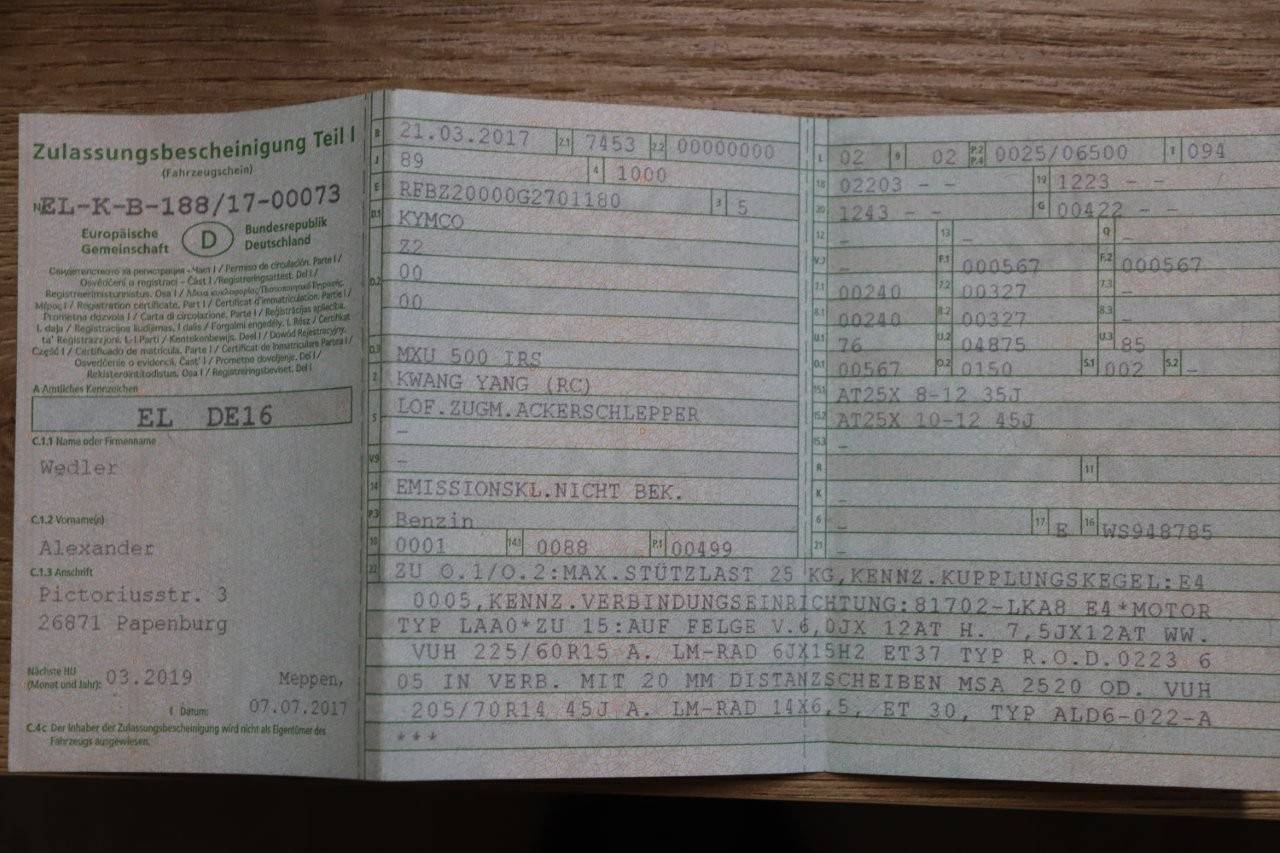 Zulassungsbescheinigung Teil I
(Fahrzeugschein)
EL-K-B-188/17-00073
Europäische
Gemeinschaft
D
Bundesrepublik
Deutschland
Свидетелство за регистрация - Част I / Permiso de circulación. Parte I /
Osvědčení o registraci - Část I / Registreringsattest. Del I /
Registreerimistunnistus. Osa I /
Μέρος I / Registration certificate. Part I / Certificat d'immatriculation. Partie I /
Prometna dozvola I / Carta di circolazione. Parte I / Reģistrācijas apliecība.
I. daļa / Registracijos liudijimas. I dalis / Forgalmi engedély. I. Rész / Ċertifikat
ta' Reġistrazzjoni. L-I Parti / Kentekenbewijs. Deel I / Dowód Rejestracyjny.
Część I / Certificado de matrícula. Parte I / Certificat de înmatriculare Partea I /
Osvedčenie o evidencii. Časť I / Prometno dovoljenje. Del I /
Rekisteröintitodistus. Osa I / Registreringsbeviset. Del I
A Amtliches Kennzeichen
EL DE16
C.1.1 Name oder Firmenname
Wedler
C.1.2 Vorname(n)
Alexander
C.1.3 Anschrift
Pictoriusstr. 3
26871 Papenburg
Nächste HU
(Monat und Jahr): 03.2019
Meppen,
I Datum: 07.07.2017
C.4c Der Inhaber der Zulassungsbescheinigung wird nicht als Eigentümer des
Fahrzeugs ausgewiesen.
B 21.03.2017 2.1 7453 2.2 00000000
J 89 4 1000
E RFBZ20000G2701180 3 5
D.1 KYMCO
Z2
D.2 00
00
D.3 MXU 500 IRS
2 KWANG YANG (RC)
5 LOF.ZUGM.ACKERSCHLEPPER
–
V.9 –
14 EMISSIONSKL.NICHT BEK.
P.3 Benzin
10 0001 14.1 0088 P.1 00499
L 02 9 02 P.2 P.4 0025/06500 T 094
18 02203 – – 19 1223 – –
20 1243 – – G 00422 – –
12 – 13 – Q –
V.7 – F.1 000567 F.2 000567
7.1 00240 7.2 00327 7.3 –
8.1 00240 8.2 00327 8.3 –
U.1 76 U.2 04875 U.3 85
O.1 00567 O.2 0150 S.1 002 S.2 –
15.1 AT25X 8-12 35J
15.2 AT25X 10-12 45J
15.3 –
R 11
K –
6 – 17 E 16 WS948785
21 –
22 ZU O.1/O.2:MAX.STÜTZLAST 25 KG,KENNZ.KUPPLUNGSKEGEL:E4
0005,KENNZ.VERBINDUNGSEINRICHTUNG:81702-LKA8 E4*MOTOR
TYP LAA0*ZU 15:AUF FELGE V.6,0JX 12AT H. 7,5JX12AT WW.
VUH 225/60R15 A. LM-RAD 6JX15H2 ET37 TYP R.O.D.0223 6
05 IN VERB. MIT 20 MM DISTANZSCHEIBEN MSA 2520 OD. VUH
205/70R14 45J A. LM-RAD 14X6,5, ET 30, TYP ALD6-022-A
***